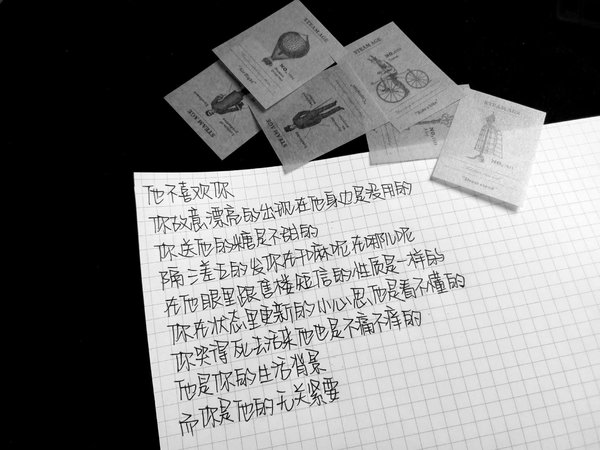 STEAM AGE
NO.
STEAM AGE
STEAM AGE
STEAM AGE
NO.
NO.
STEAM AGE
NO.
他不喜欢你
你故意漂亮的出现在他身边是没用的
你送他的糖是不甜的
隔三差五的发你在干嘛呢在哪儿呢
在他眼里跟售楼短信的性质是一样的
你在状态里更新的小心思他是看不懂的
你哭得死去活来他也是不痛不痒的
他是你的生活背景
而你是他的无关紧要